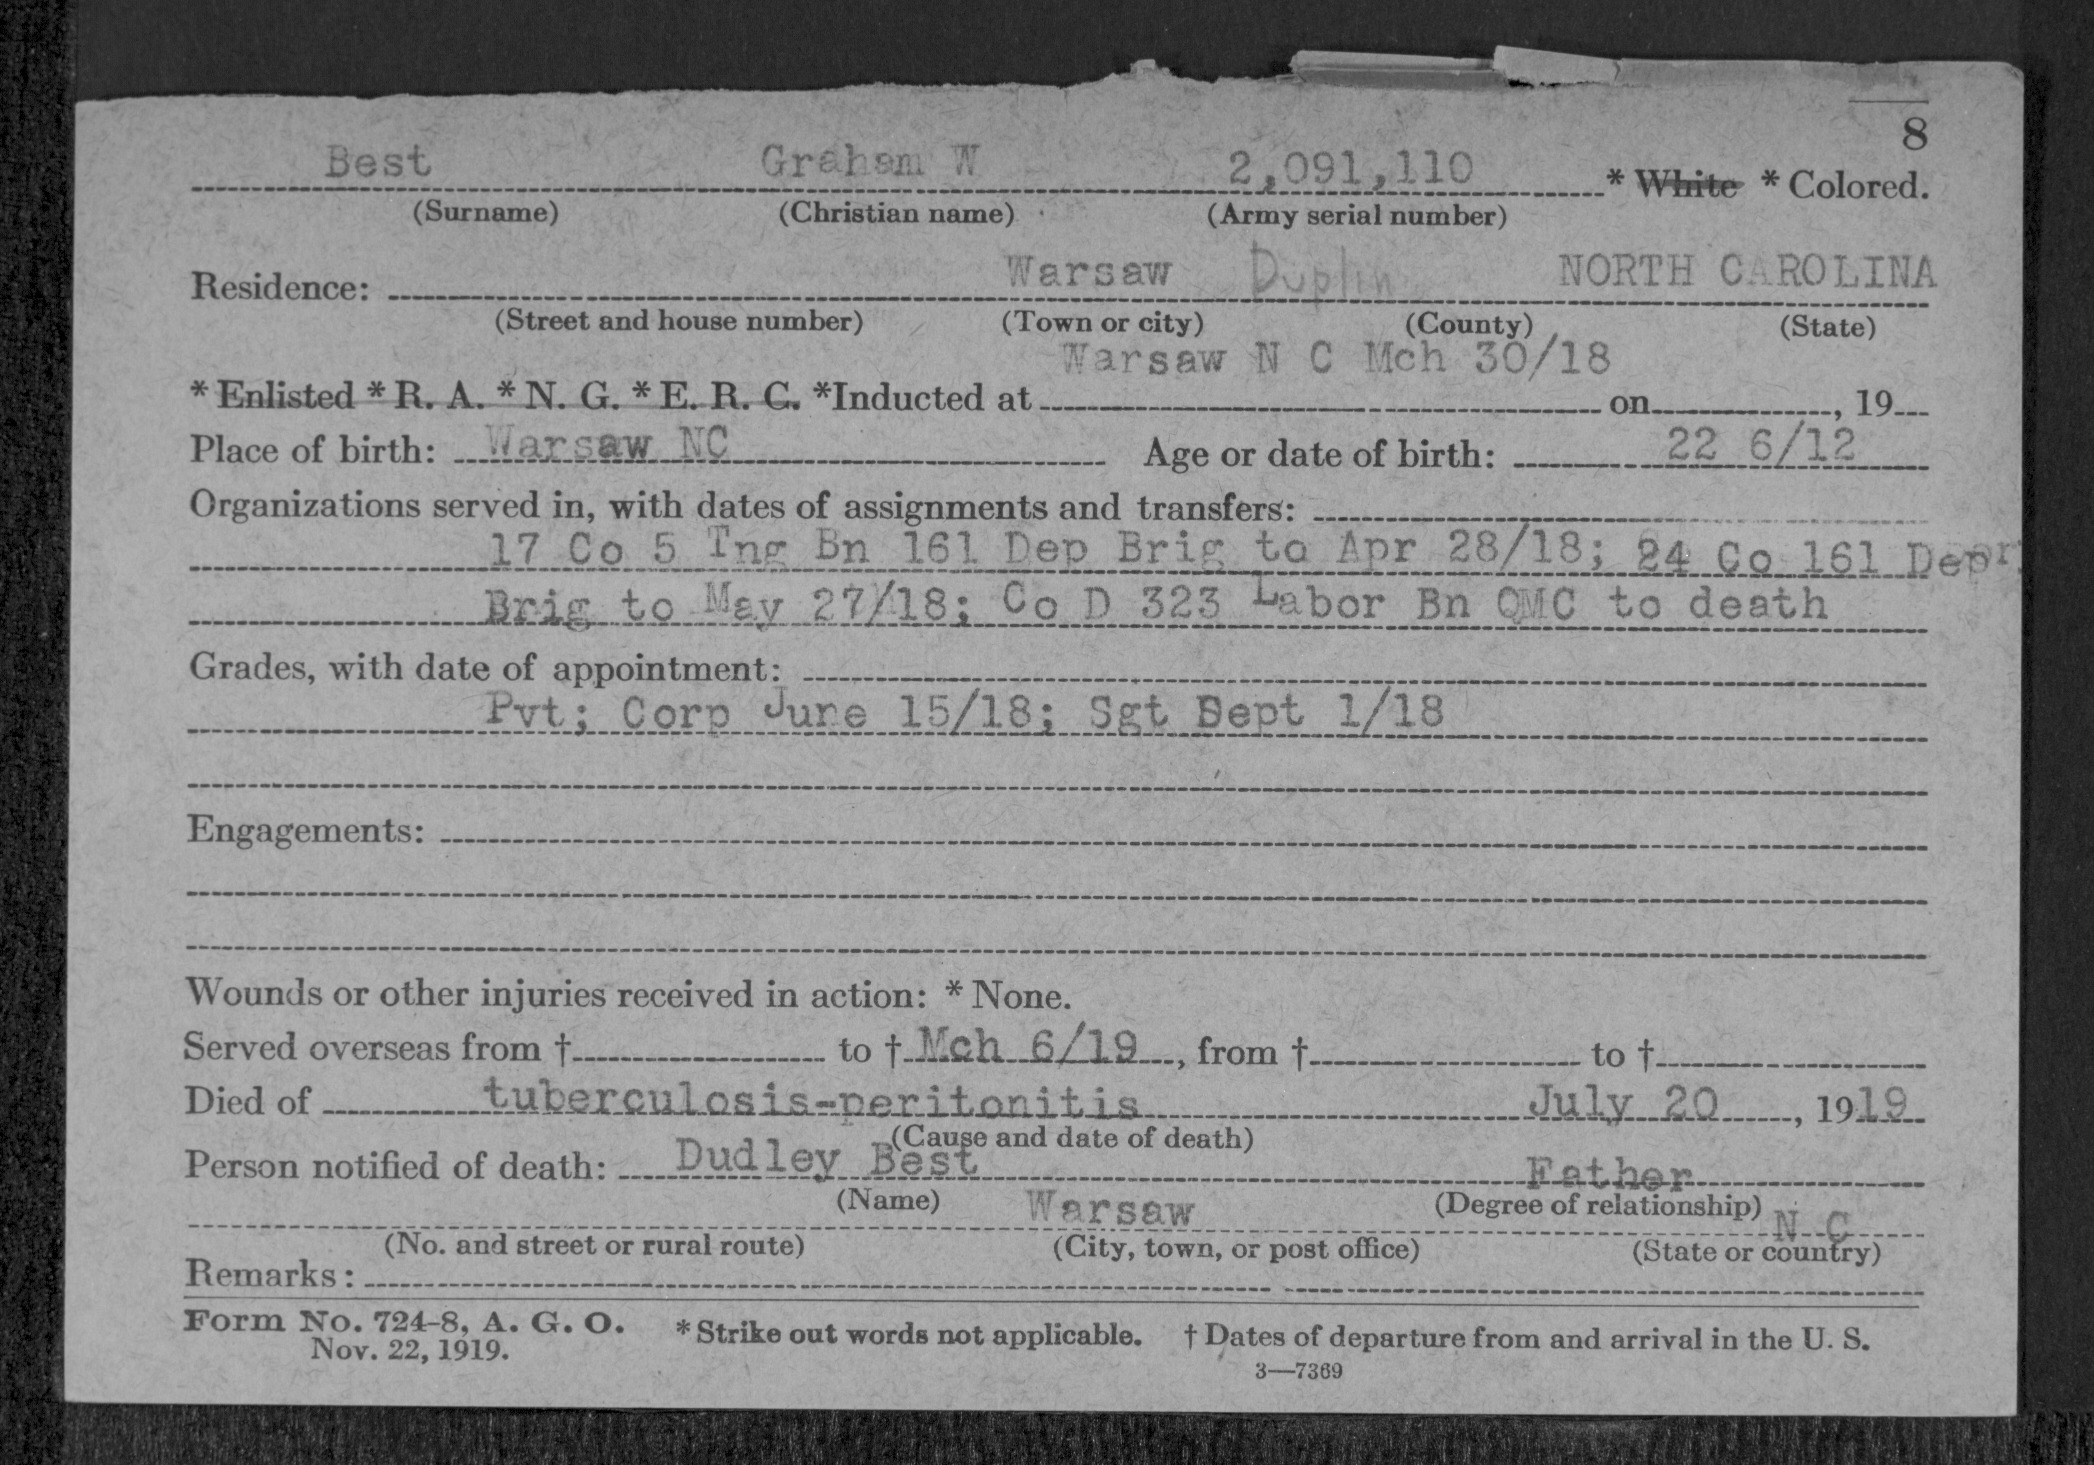 8
Best Graham W 2,091,110 * White * Colored.
(Surname) (Christian name) (Army serial number)
Residence: Warsaw Duplin NORTH CAROLINA
(Street and house number) (Town or city) (County) (State)
Warsaw N C Mch 30/18
* Enlisted * R. A. * N. G. * E. R. C. *Inducted at on , 19
Place of birth: Warsaw NC Age or date of birth: 22 6/12
Organizations served in, with dates of assignments and transfers:
17 Co 5 Tng Bn 161 Dep Brig to Apr 28/18; 24 Co 161 Dep
Brig to May 27/18; Co D 323 Labor Bn QMC to death
Grades, with date of appointment:
Pvt; Corp June 15/18; Sgt Sept 1/18
Engagements:
Wounds or other injuries received in action: * None.
Served overseas from † to † Mch 6/19, from † to †
Died of tuberculosis-peritonitis July 20, 1919
(Cause and date of death)
Person notified of death: Dudley Best Father
(Name) (Degree of relationship)
Warsaw N C
(No. and street or rural route) (City, town, or post office) (State or country)
Remarks:
Form No. 724-8, A. G. O. * Strike out words not applicable. † Dates of departure from and arrival in the U. S.
Nov. 22, 1919.
3—7369